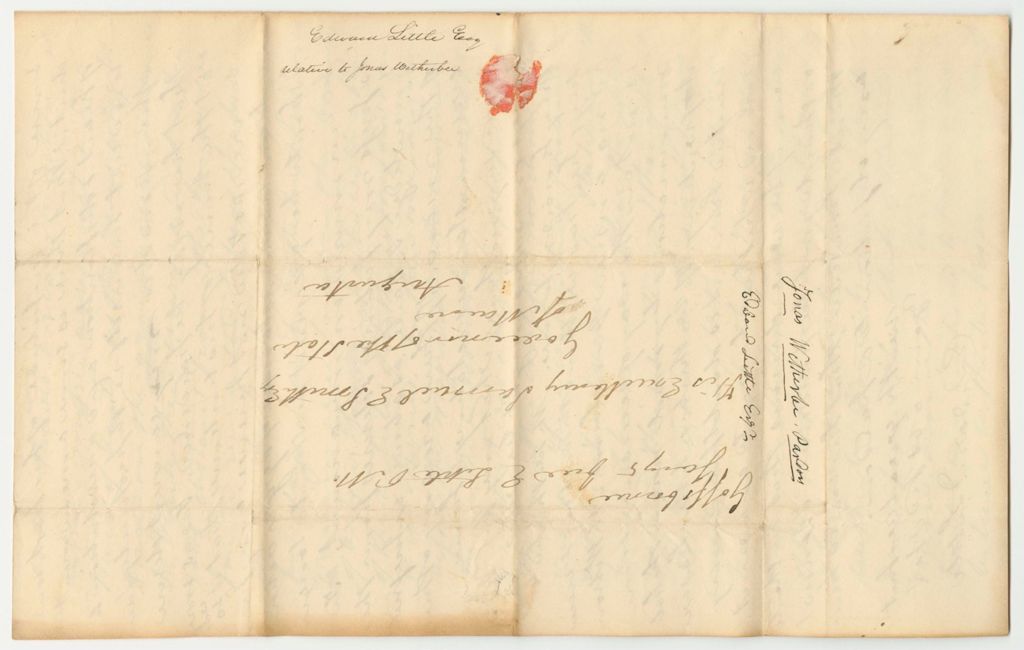 Edward Little Esq
relative to Jonas Wetherbee
Goffsborne
Jany 5 free E Little P.M.
His Excellency Samuel E Smith Esq
Governor of the State
of Maine
Augusta
Edward Little Esq
Jonas Wetherbee. Pardon